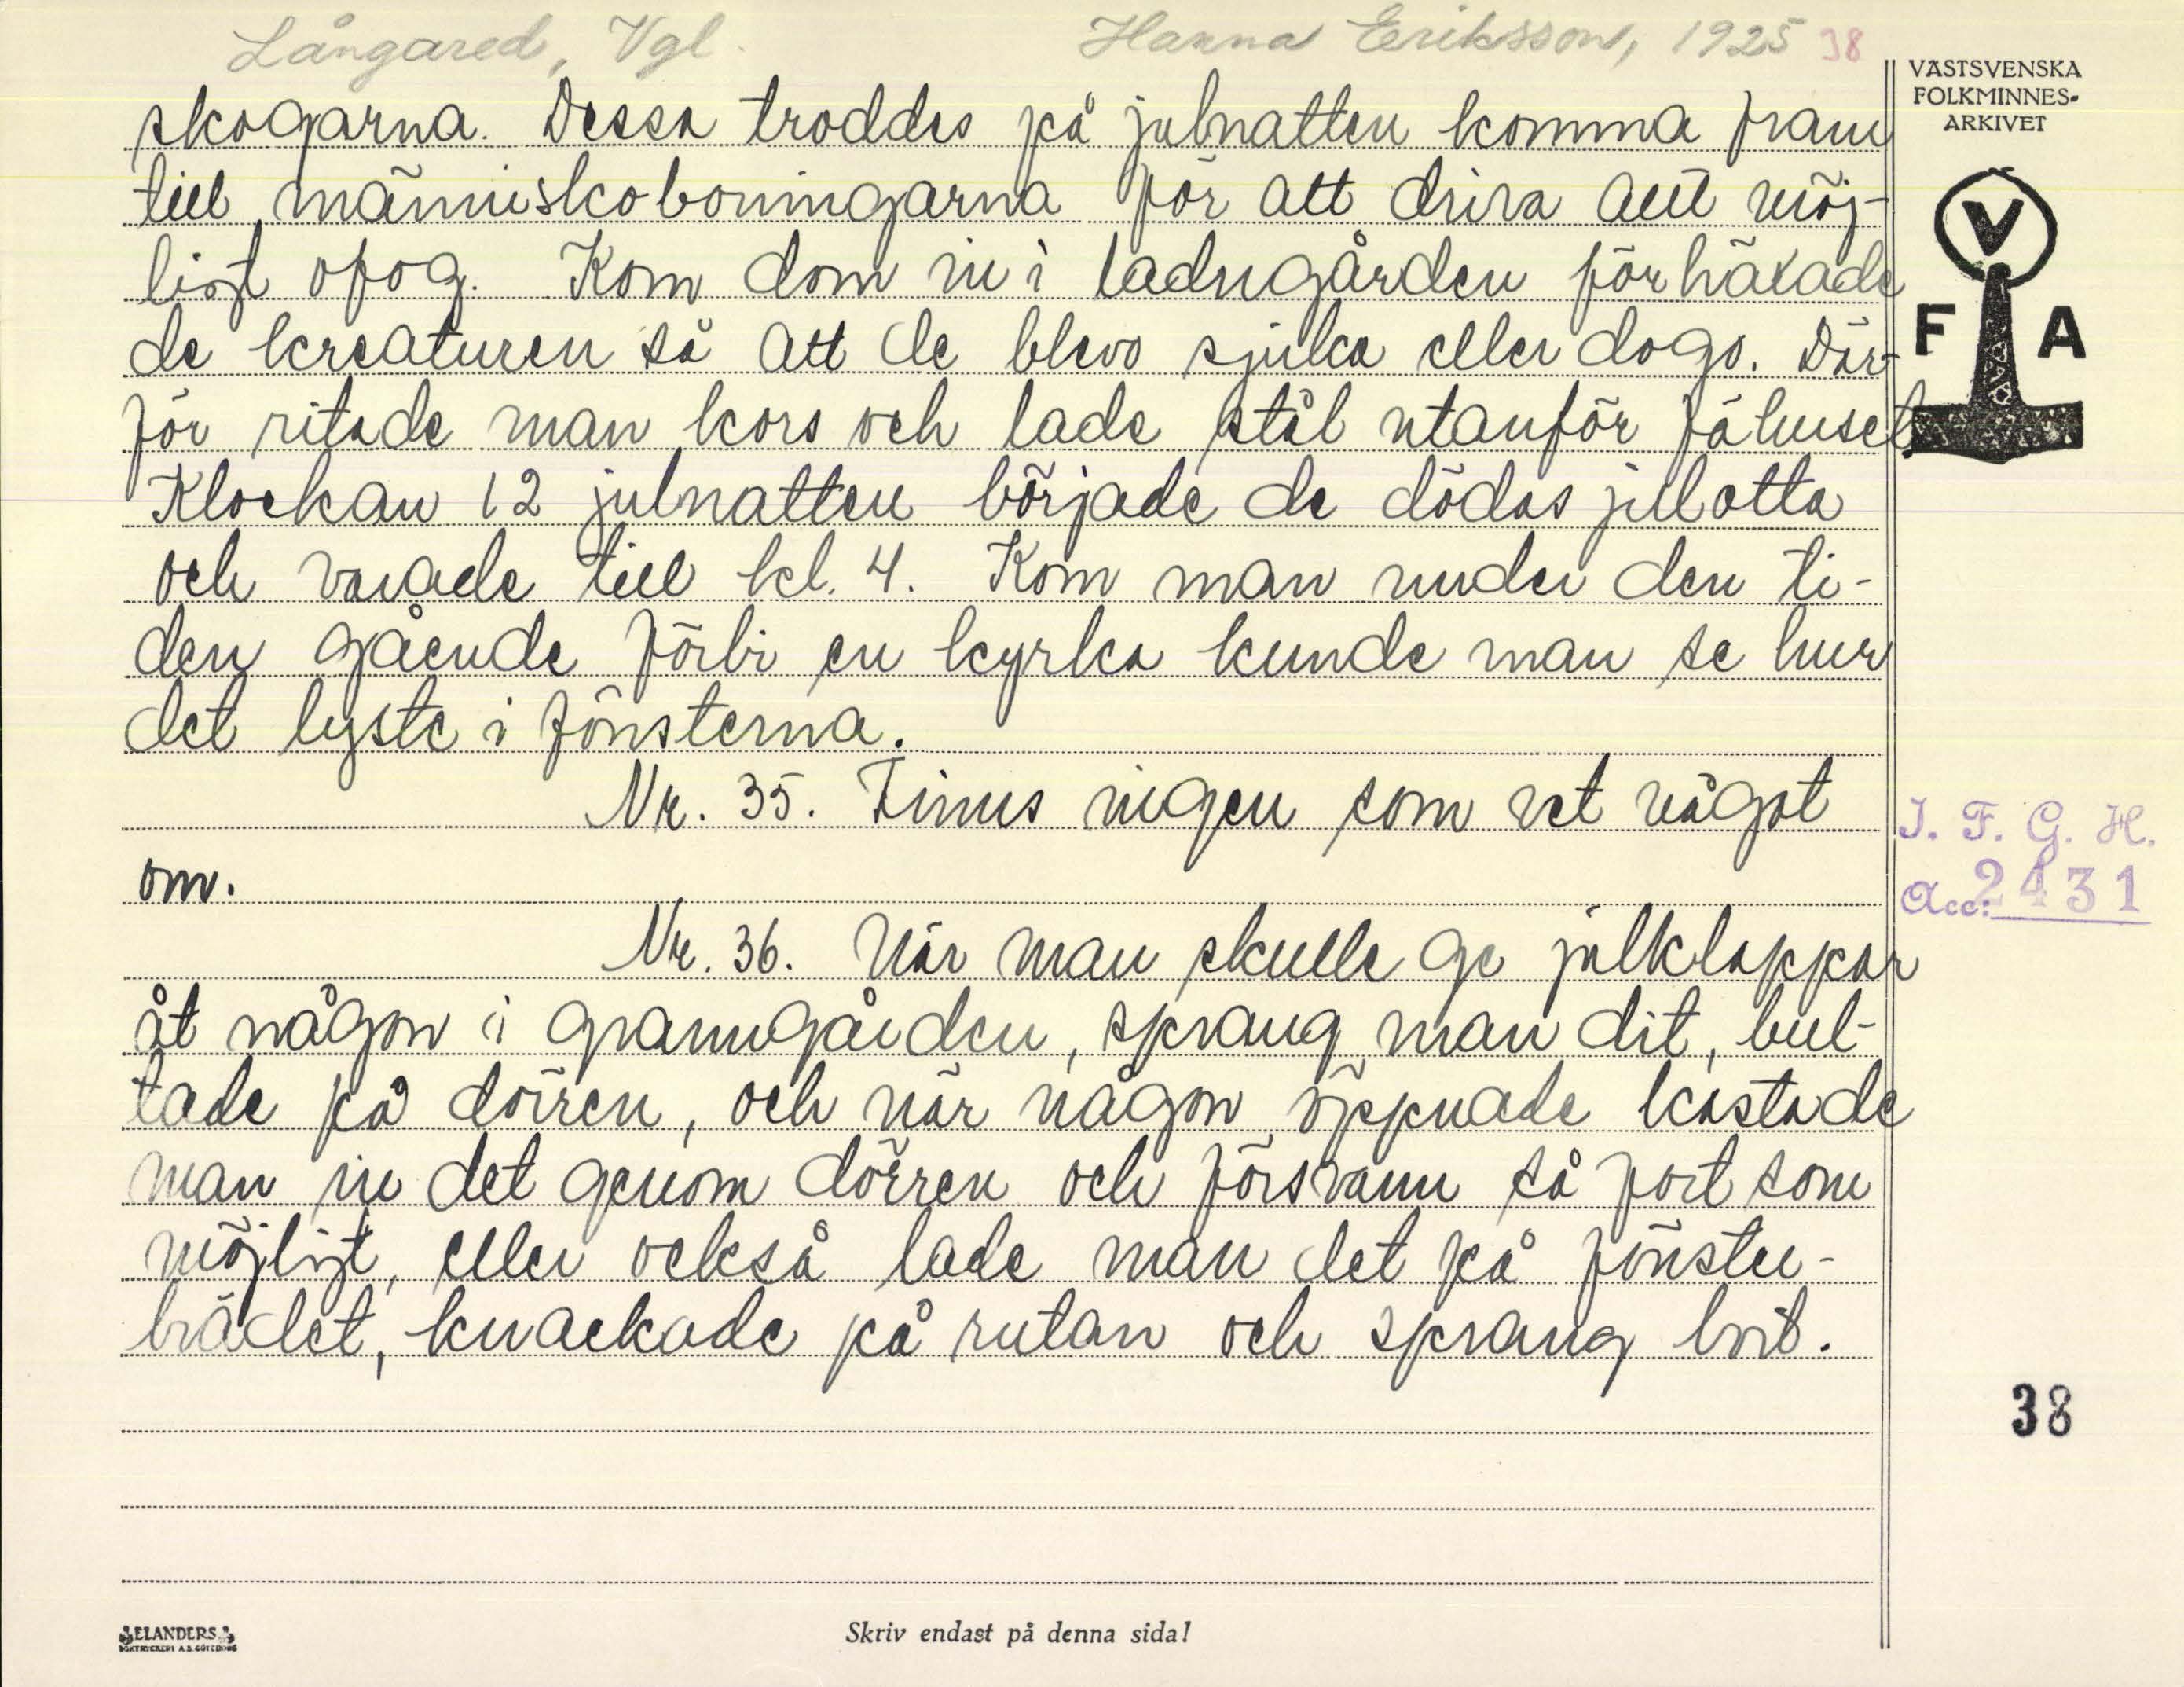 Långared, Vgl. Hanna Eriksson, 1925 38
VÄSTSVENSKA
FOLKMINNES-
ARKIVET
V
F A
skogarna. Dessa troddes på julnatten komma fram
till människoboningarna för att driva allt möj-
ligt ofog. Kom dom in i ladugården förhäxade
de kreaturen så att de blevo sjuka eller dogo. Där-
för ritade man kors och lade stål utanför fähuset
Klockan 12 julnatten började de dödas julotta
och varade till kl. 4. Kom man under den ti-
den gående förbi en kyrka kunde man se hur
det lyste i fönsterna.
Nr. 35. Finns ingen som vet något
om.
I. F. G. H.
Acc: 2431
Nr. 36. När man skulle ge julklappar
åt någon i granngården, sprang man dit, bul-
tade på dörren, och när någon öppnade kastade
man in det genom dörren och försvann så fort som
möjligt, eller också lade man det på fönster-
brädet, knackade på rutan och sprang bort.
38
ELANDERS
BOKTRYCKERI A.B. GÖTEBORG
Skriv endast på denna sida!